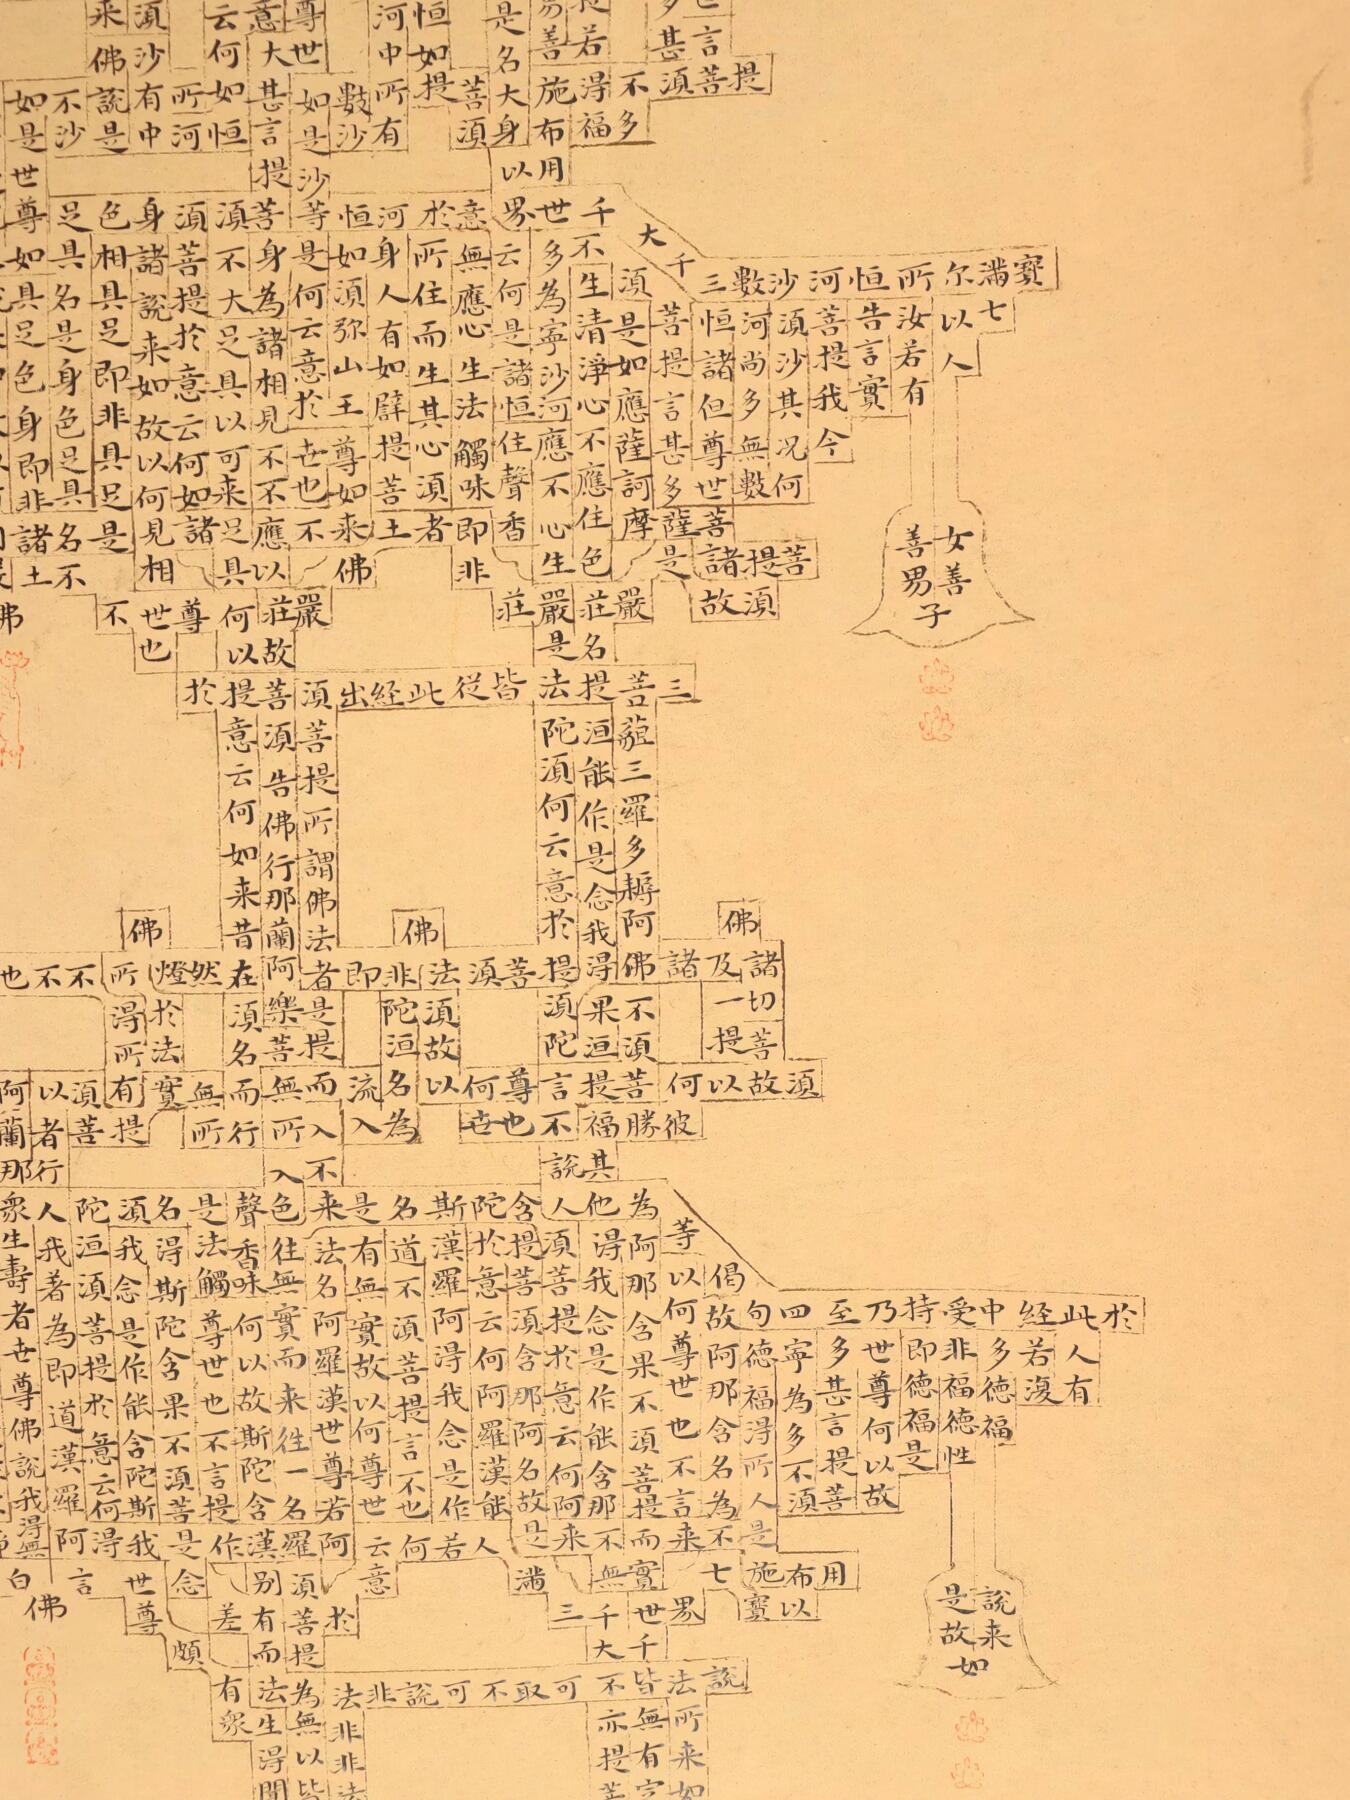 提
言菩
甚須
不多
若得福
善施布用
是名大身以
菩須
恒如提
河中所有
數沙
尊世如是沙
意大甚言提
云何如恒
所河
須沙有中
来佛說是
不沙
如是世尊
寶滿尔所恒河沙數三千大千世界
七
以人
汝若有
告言實
菩提我今
須沙其况何
河尚多無數
恒諸但尊世菩
菩提言甚多薩是
須是如應薩訶摩
不生清淨心不應住色
多為寧沙河應不心生
云何是諸恒住聲香
意無應心生法觸味即非
於所住而生其心須者
河身人有如辟提菩土
恒如須弥山王尊如来佛
等是何云意於世也不
菩身為諸相見不不應以
須不大足具以可来足具
須菩提於意云何如諸
身諸說来如故以何見相
色相具足即非具足是
足具名是身色足具名不
如具足色身即非諸土
菩提諸
須故
女善
善男子
嚴莊嚴莊
名是
嚴莊
故以何
尊世不
也
三菩提法皆從此經出須菩提於
蘊三羅多耨阿佛不須菩勝
洹能作是念我得果洹提福其
陀須何云意於提須陀言不說
菩提所謂佛法者是提而入不
須告佛行那蘭阿樂菩無所入
意云何如来昔在須名而行
佛
佛
佛
諸及諸
切一
菩提
須故以何
彼
提菩須法非即者
須故以何尊
陀洹名為
流入
也世
在然燈所不不也
於法實無所
得所有提
須菩
以者行
阿蘭那
於此經中受持乃至四句偈等為他人
人有
若復
多德福
非福德性
即德福是
世尊何以故
多甚言提菩
寧為多不須
德福得所人是
故阿那含名為不
以何尊世也不言来
阿那含果不須菩提而實
得我念是作能含那不無
須菩提於意云何阿来
含提菩須含那阿名故是
陀於意云何阿羅漢能
斯漢羅阿得我念是作
名道不須菩提言不也
是有無實故以何尊世云意
来法名阿羅漢世尊若阿
色往無實而来往一名羅須
聲香味何以故斯陀含漢别
是法觸尊世也不言提作
名得斯陀含果不須菩是念
須我念是作能含陀斯我世尊
陀洹須菩提於意云何得
人我著為即道漢羅阿言
衆生壽者世尊佛說我得無
白佛
用布施七
以寶
界世千大千三滿
說来
是故如
說法皆不可取不可說非法
所来如
無有
亦提
法非非法
於
菩提為無以皆
有而法生得聞
差
有衆
頗